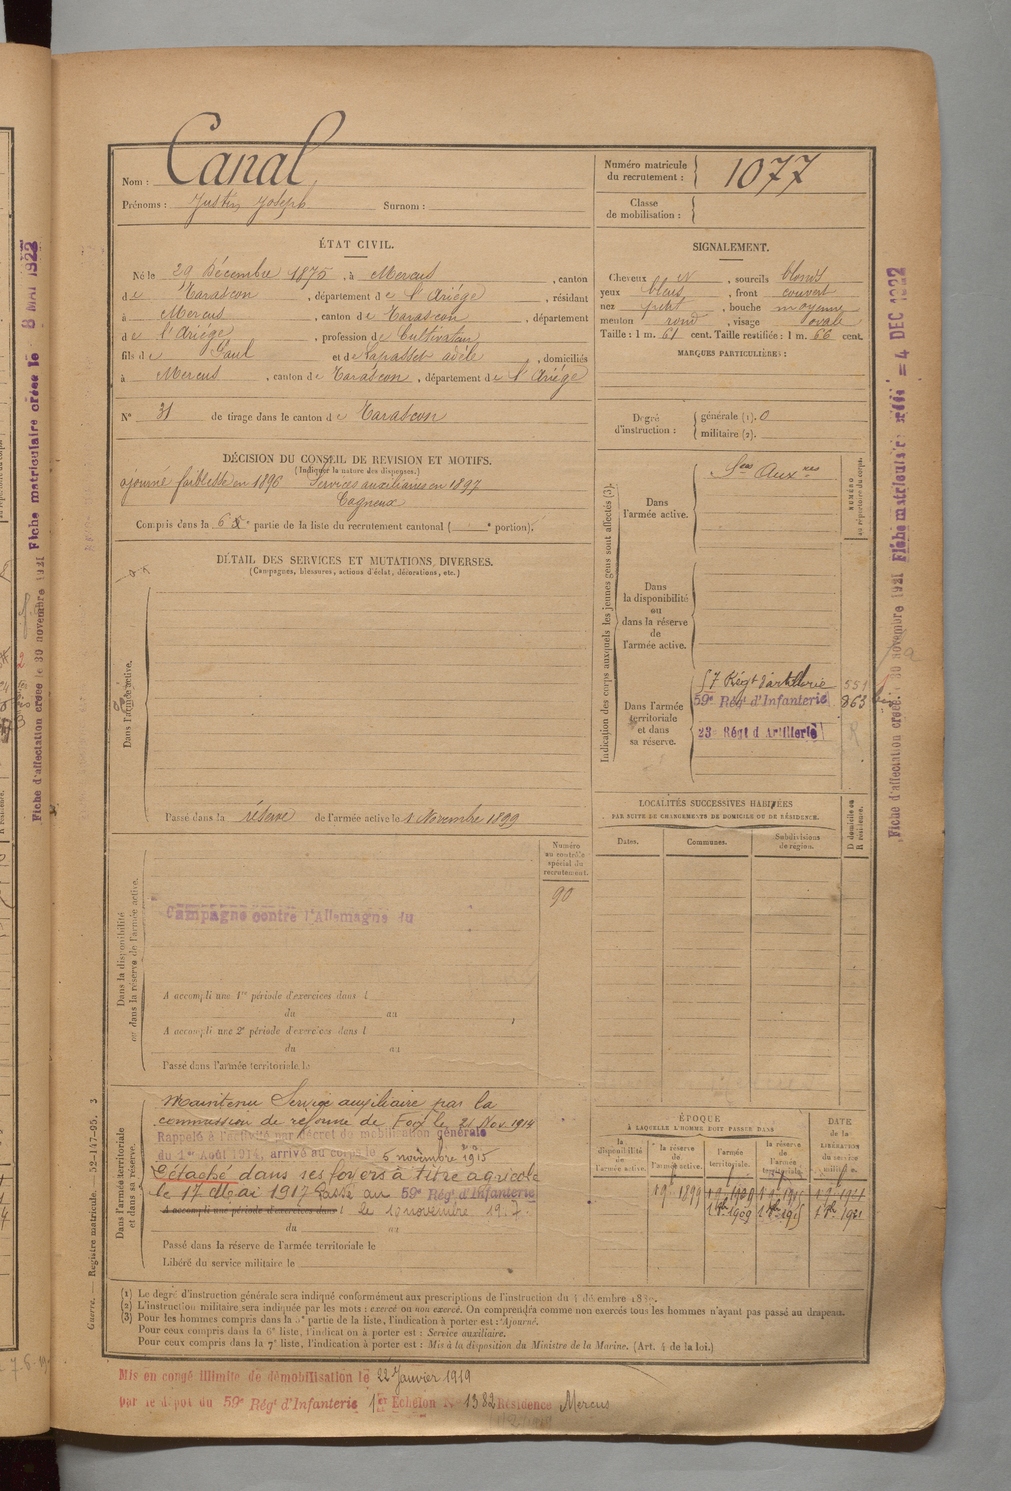 Nom : Canal
Prénoms : Justin Joseph Surnom :
Numéro matricule du recrutement : 1077
Classe de mobilisation :
ÉTAT CIVIL.
Né le 29 Décembre 1875, à Mercus, canton
de Tarascon, département de l'Ariège, résidant
à Mercus, canton de Tarascon, département
de l'Ariège, profession de Cultivateur
fils de Paul et de Lapasset adèle, domiciliés
à Mercus, canton de Tarascon, département de l'Ariège
N° 31 de tirage dans le canton de Tarascon
SIGNALEMENT.
Cheveux N, sourcils blonds
yeux bleus, front couvert
nez petit, bouche moyenne
menton rond, visage ovale
Taille : 1 m. 61 cent. Taille rectifiée : 1 m. 66 cent.
MARQUES PARTICULIÈRES :
Degré d'instruction : générale (1). 0
militaire (2).
DÉCISION DU CONSEIL DE REVISION ET MOTIFS.
(Indiquer la nature des dispenses.)
ajourné faiblesse en 1896 Services auxiliaires en 1897
Cagneux
Compris dans la 6e partie de la liste du recrutement cantonal ( e portion).
DÉTAIL DES SERVICES ET MUTATIONS DIVERSES.
(Campagnes, blessures, actions d'éclat, décorations, etc.)
Dans l'armée active.
Passé dans la réserve de l'armée active le 1 Novembre 1899
Indication des corps auxquels les jeunes gens sont affectés (3).
NUMÉRO au répertoire du corps.
Dans l'armée active.
Ser Auxres
Dans la disponibilité ou dans la réserve de l'armée active.
Dans l'armée territoriale et dans sa réserve.
57 Régt d'artillerie 551
59e Régt d'Infanterie 863
23e Régt d'Artillerie R
LOCALITÉS SUCCESSIVES HABITÉES
PAR SUITE DE CHANGEMENTS DE DOMICILE OU DE RÉSIDENCE.
Dates. Communes. Subdivisions de région. D domicile ou R résidence.
Numéro au contrôle spécial du recrutement.
90
Dans la disponibilité ou dans la réserve de l'armée active.
Campagne contre l'Allemagne du
A accompli une 1re période d'exercices dans l
du au
A accompli une 2e période d'exercices dans l
du au
Passé dans l'armée territoriale le
Dans l'armée territoriale et dans sa réserve.
Maintenu Service auxiliaire par la
commission de réforme de Foix le 21 Nov. 1914
Rappelé à l'activité par décret de mobilisation générale
du 1er Août 1914, arrivé au corps le 6 novembre 1915
Détaché dans ses foyers à titre agricole
le 17 Mai 1917 Passé au 59e Régt d'Infanterie
A accompli une période d'exercices dans l le 10 novembre 1917
du au
Passé dans la réserve de l'armée territoriale le
Libéré du service militaire le
ÉPOQUE
À LAQUELLE L'HOMME DOIT PASSER DANS
la disponibilité de l'armée active. la réserve de l'armée active. l'armée territoriale. la réserve de l'armée territoriale. DATE de la LIBÉRATION du service militaire.
(1) Le degré d'instruction générale sera indiqué conformément aux prescriptions de l'instruction du 4 décembre
(2) L'instruction militaire sera indiquée par les mots : exercé ou non exercé. On comprendra comme non exercés tous les hommes n'ayant pas passé au drapeau.
(3) Pour les hommes compris dans la 5e partie de la liste, l'indication à porter est : Ajourné.
Pour ceux compris dans la 6e liste, l'indication à porter est : Service auxiliaire.
Pour ceux compris dans la 7e liste, l'indication à porter est : Mis à la disposition du Ministre de la Marine. (Art. 4 de la loi.)
Mis en congé illimité de démobilisation le 22 Janvier 1919
par le dépôt du 59e Régt d'Infanterie 1er Echelon N° 1382 Résidence Mercus
Guerre. — Registre matricule. — 52-147-95. 3
Fiche d'affectation créée le 30 novembre 1921 Fiche matriculaire créée le 8 MAI 1922
Fiche d'affectation créée 30 novembre 1921 Fiche matricule = 4 DEC 1922